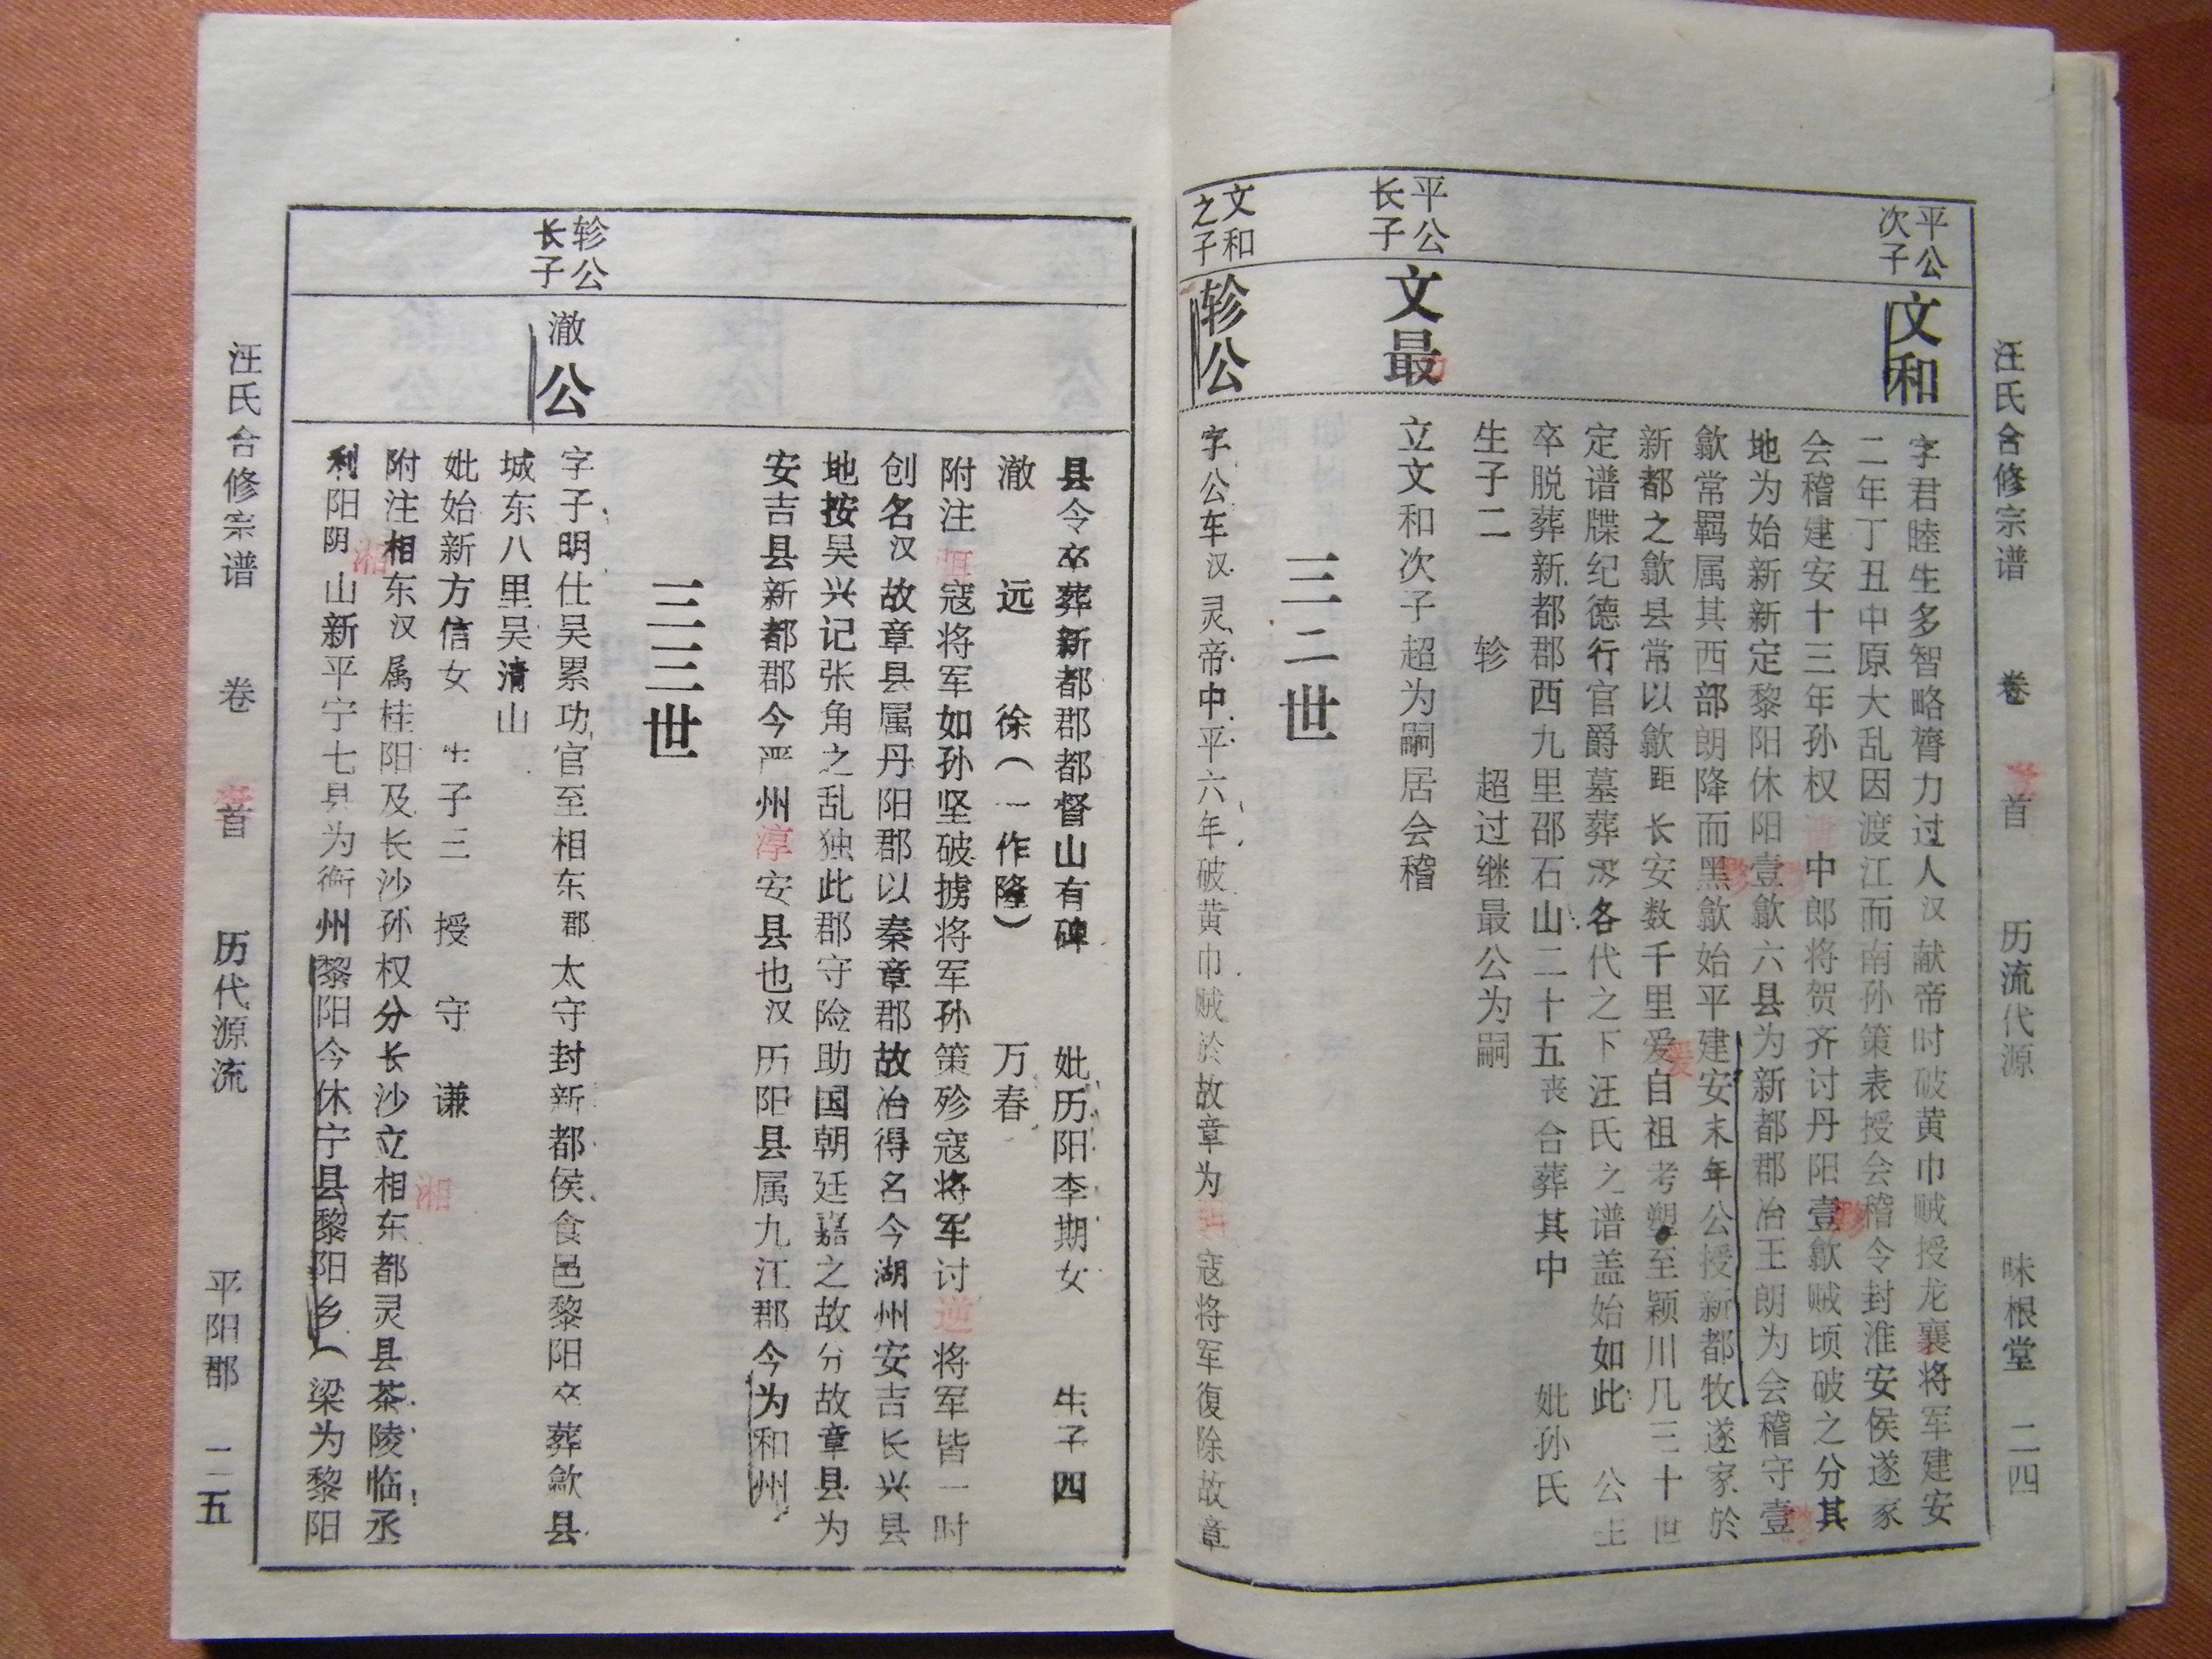 汪氏合修宗谱 卷首 历流代源 味根堂 二四
平公
次子
文和
字君睦生多智略膂力过人汉献帝时破黄巾贼授龙襄将军建安
二年丁丑中原大乱因渡江而南孙策表授会稽令封淮安侯遂家
会稽建安十三年孙权 中郎将贺齐讨丹阳壹歙贼顷破之分其
地为始新新定黎阳休阳壹歙六县为新都郡冶王朗为会稽守壹
歙常羁属其西部朗降而黑歙始平建安末年公授新都牧遂家於
新都之歙县常以歙距长安数千里爱自祖考塱至颖川几三十世
定谱牒纪德行官爵墓葬 各代之下汪氏之谱盖始如此 公王
卒脱葬新都郡西九里邵石山二十五丧合葬其中 妣孙氏
生子二 轸 超过继最公为嗣
平公
长子
文最
立文和次子超为嗣居会稽
三二世
文和
之子
轸公
字公车汉灵帝中平六年破黄巾贼於故章为 寇将军復除故章
县令卒葬新都郡都督山有碑 妣历阳李期女 生子四
澈 远 徐（一作隆） 万春
附注 寇将军如孙坚破掳将军孙策殄寇将军讨逆将军皆一时
创名汉故章县属丹阳郡以秦章郡故冶得名今湖州安吉长兴县
地按吴兴记张角之乱独此郡守险助国朝廷嘉之故分故章县为
安吉县新都郡今严州淳安县也汉历阳县属九江郡今为和州
三三世
轸公
长子
澈公
字子明仕吴累功官至相东郡太守封新都侯食邑黎阳卒葬歙县
城东八里吴清山
妣始新方信女 生子三 授 守 谦
附注相东汉属桂阳及长沙孙权分长沙立相东都灵县茶陵临丞
湘
湘
利阳阴山新平宁七县为衡州黎阳今休宁县黎阳乡（梁为黎阳
汪氏合修宗谱 卷首 历代源流 平阳郡 二五